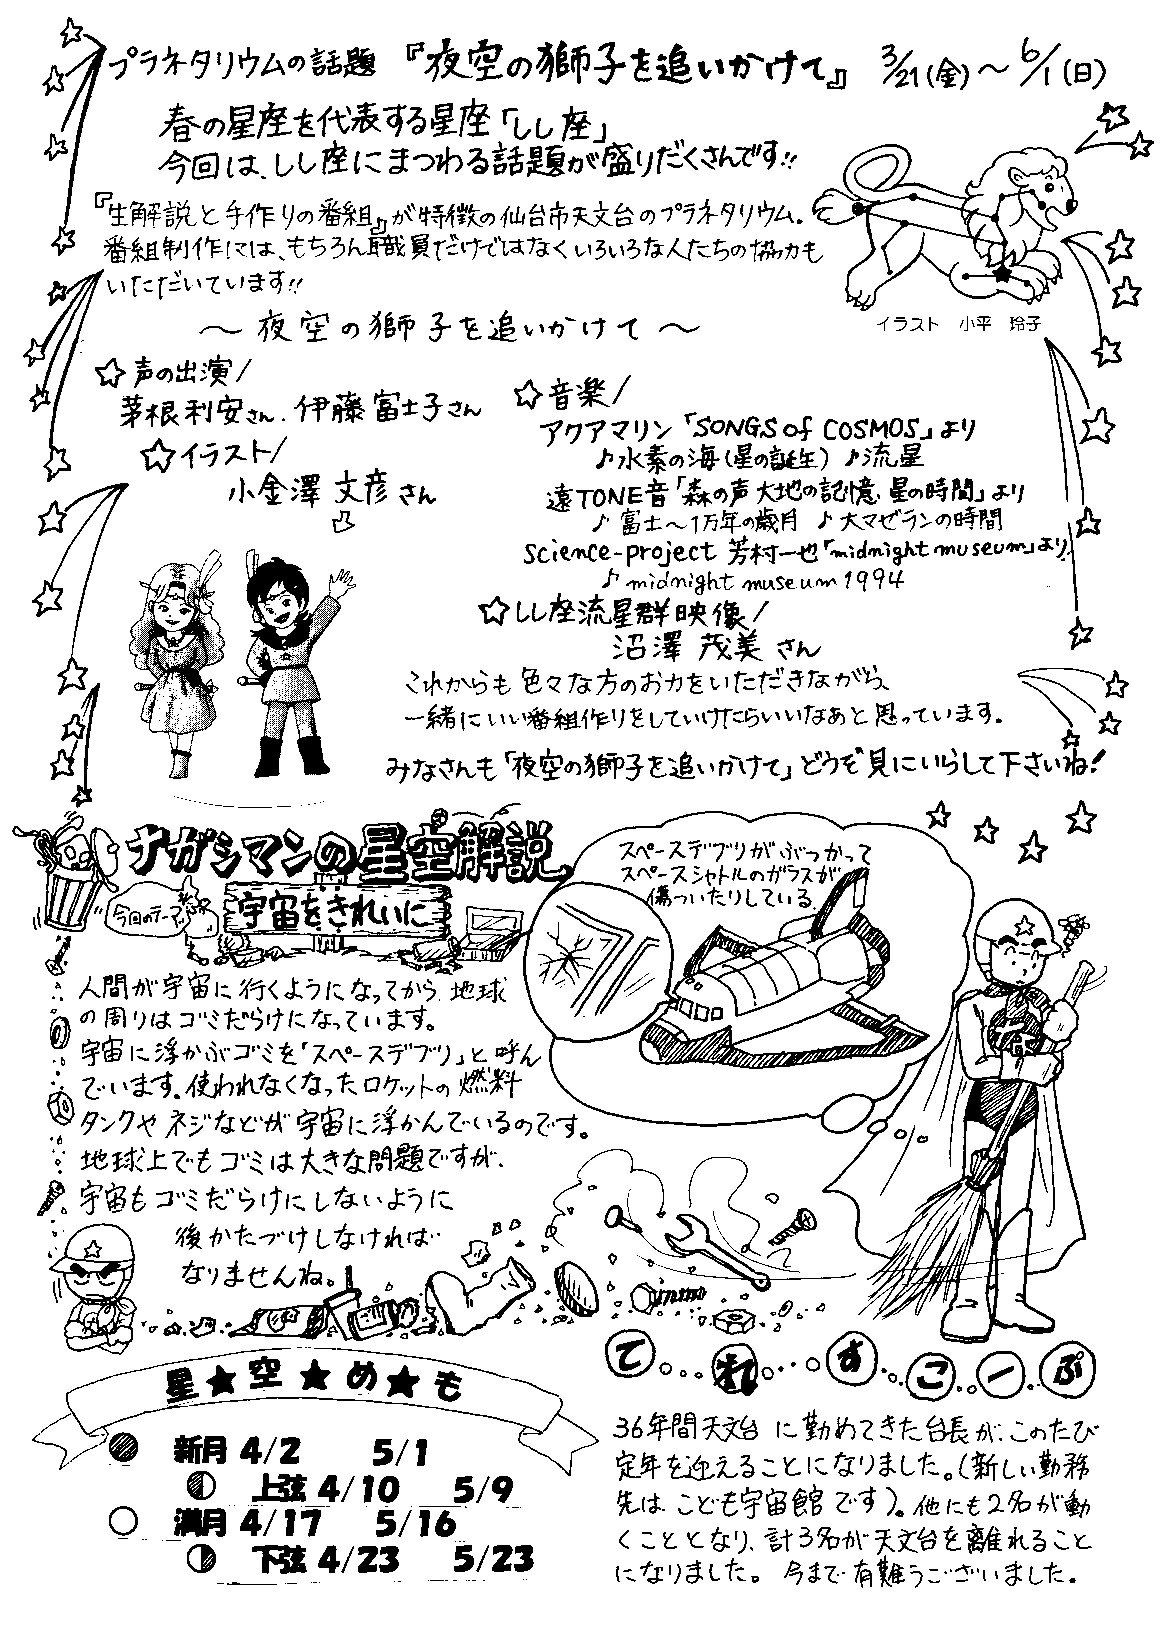 プラネタリウムの話題 『夜空の獅子を追いかけて』 3/21(金)～6/1(日)
春の星座を代表する星座「しし座」
今回は、しし座にまつわる話題が盛りだくさんです!!
『生解説と手作りの番組』が特徴の仙台市天文台のプラネタリウム。
番組制作には、もちろん職員だけではなくいろいろな人たちの協力も
いただいています!!
イラスト 小平 玲子
～ 夜空の獅子を追いかけて ～
☆声の出演/
茅根利安さん、伊藤富士子さん
☆イラスト/
小金澤 文彦さん
☆音楽/
アクアマリン「SONGS of COSMOS」より
♪水素の海(星の誕生) ♪流星
遠TONE音「森の声 大地の記憶 星の時間」より
♪富士～1万年の歳月 ♪大マゼランの時間
science-project 芳村一也「midnight museum」より
♪midnight museum 1994
☆しし座流星群映像/
沼澤 茂美さん
これからも色々な方のお力をいただきながら、
一緒にいい番組作りをしていけたらいいなあと思っています。
みなさんも「夜空の獅子を追いかけて」どうぞ見にいらして下さいね!
ナガシマンの星空解説
今回のテーマ
宇宙をきれいに
スペースデブリがぶつかって
スペースシャトルのガラスが
傷ついたりしている。
人間が宇宙に行くようになってから、地球
の周りはゴミだらけになっています。
宇宙に浮かぶゴミを「スペースデブリ」と呼ん
でいます。使われなくなったロケットの燃料
タンクやネジなどが宇宙に浮かんでいるのです。
地球上でもゴミは大きな問題ですが、
宇宙もゴミだらけにしないように
後かたづけしなければ
なりませんね。
星★空★め★も
新月 4/2 5/1
上弦 4/10 5/9
満月 4/17 5/16
下弦 4/23 5/23
てれすこーぷ
36年間天文台に勤めてきた台長が、このたび
定年を迎えることになりました。(新しい勤務
先は、こども宇宙館です)。他にも2名が動
くこととなり、計3名が天文台を離れること
になりました。今まで有難うございました。